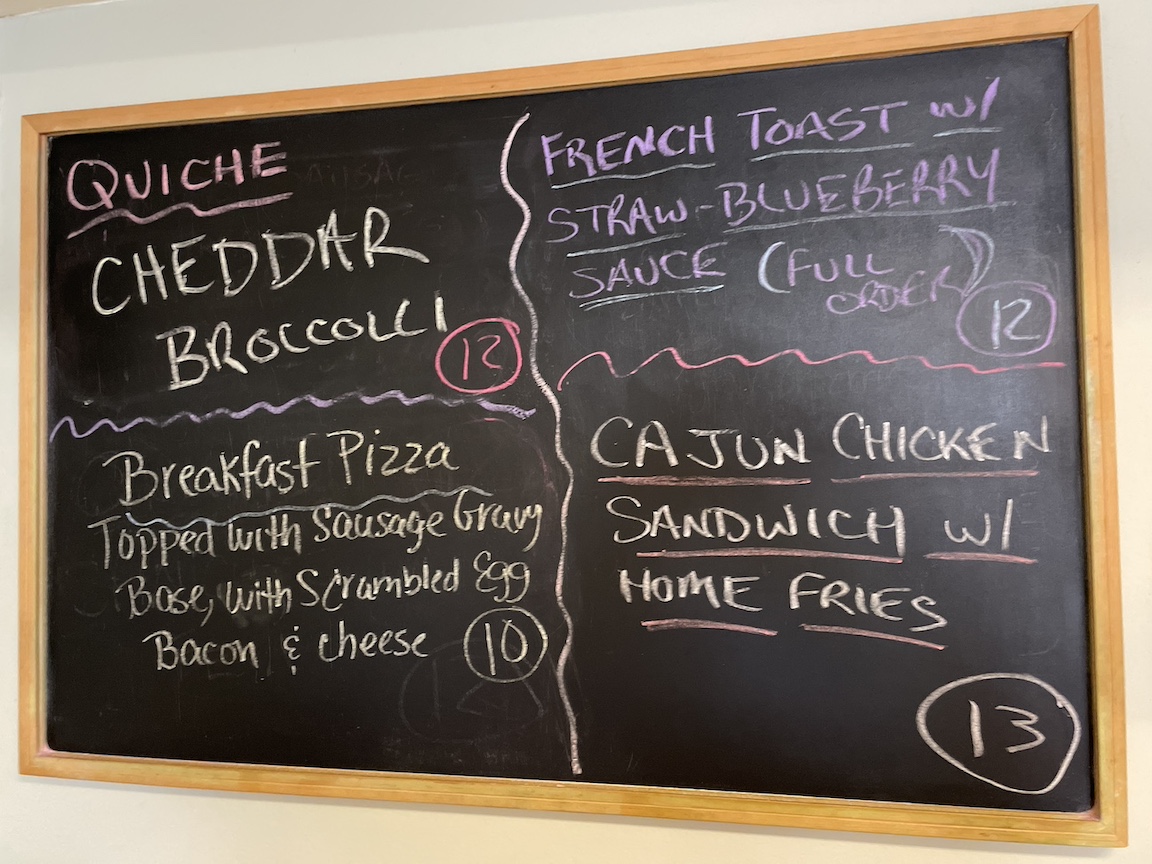 QUICHE
CHEDDAR
BROCCOLLI
12
Breakfast Pizza
Topped with Sausage Gravy
Base, with Scrambled Egg
Bacon & cheese 10
FRENCH TOAST w/
STRAW-BLUEBERRY
SAUCE (FULL
ORDER)
12
CAJUN CHICKEN
SANDWICH w/
HOME FRIES
13